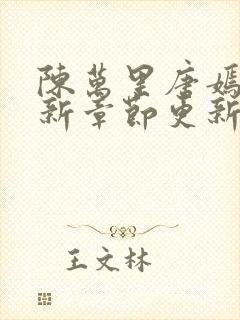 陳萬里唐嫣
新章節更新
王文林